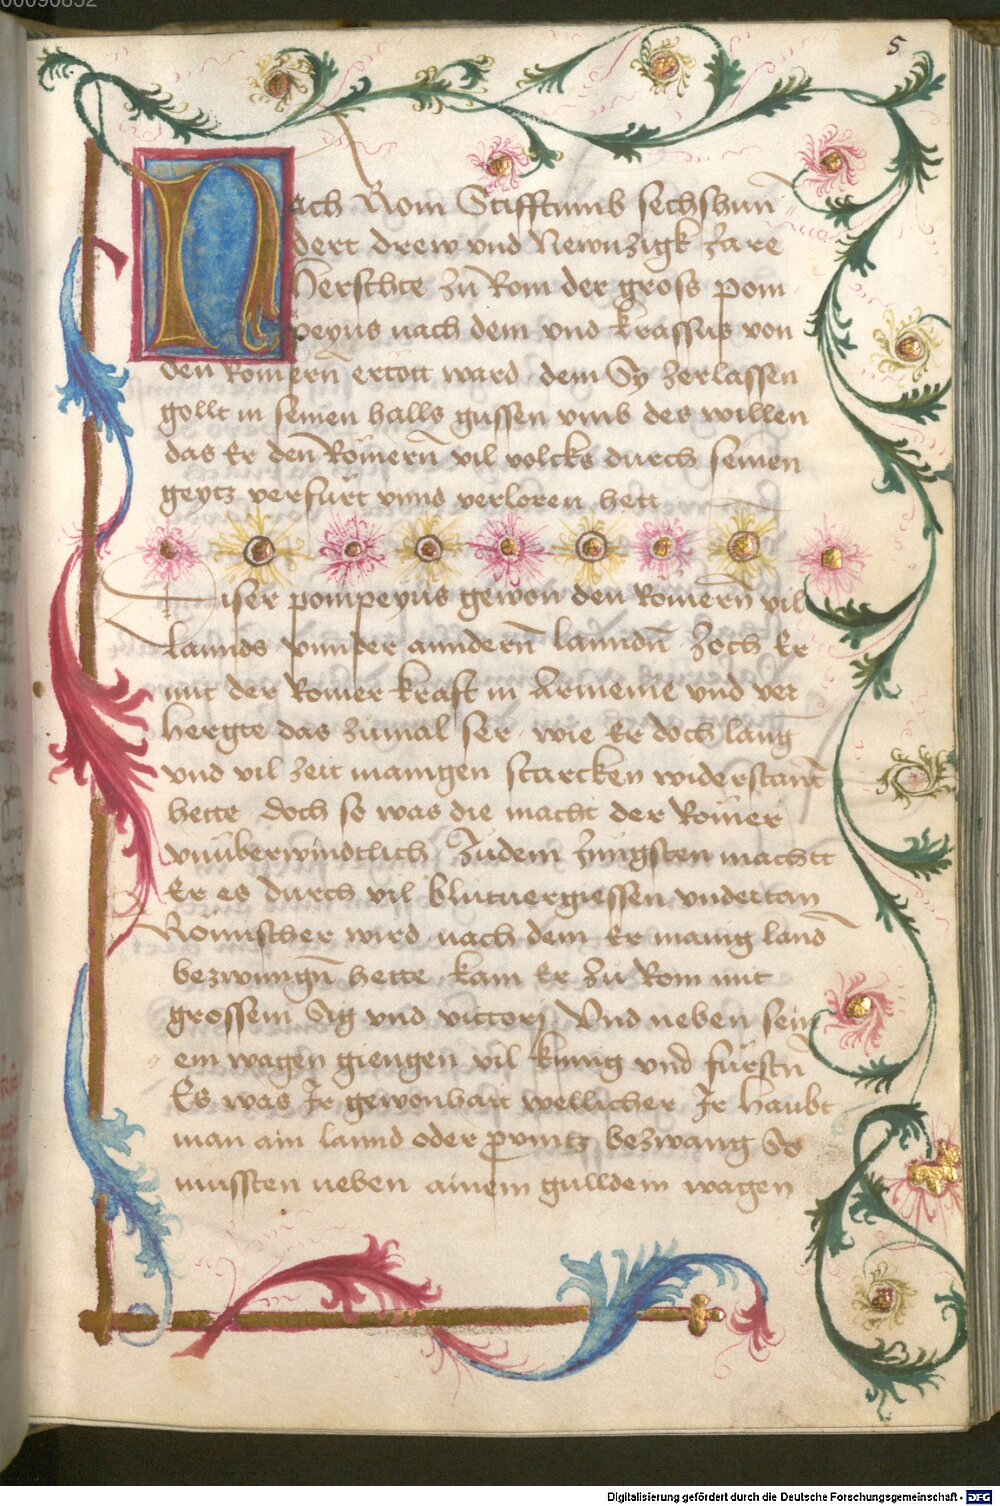 00090852
5
Nach Rom Stifftumb sechshun
dert drew vnd Newnzigk Jare
Herschte zu Rom der gross pom
peyus nach dem vnd krassus von
den Römern ertött ward dem Sy zerlassen
gollt in seinen halls gussen vmb des willen
das Er den Römern vil volcks durch seinen
geytz verfürt vnnd verloren hett
Diser pompeyus gewon den Römern vil
lannds vnnder anndern lanndn̄ Zoch Er
mit der Romer krafft in Armenie vnd ver
hergte das zumal ser wie Er doch lang
vnd vil zeit manigen starcken widerstant
hette doch so was die macht der Römer
vnüberwindtlich Zudem Jüngsten machtt
Er es durch vil blutuergiessen vndertan
Römischer wird nach dem Er manig land
bezwungn̄ hette kam Er zu Rom mit
grossem Sig vnd victorj Vnd neben sein
em wagen giengen vil kunig vnd fürstn̄
Es was Ir gewonhait wellicher Ir haubt
man ain lannd oder printz bezwang So
mussten neben ainem gulldem wagen
Digitalisierung gefördert durch die Deutsche Forschungsgemeinschaft - DFG